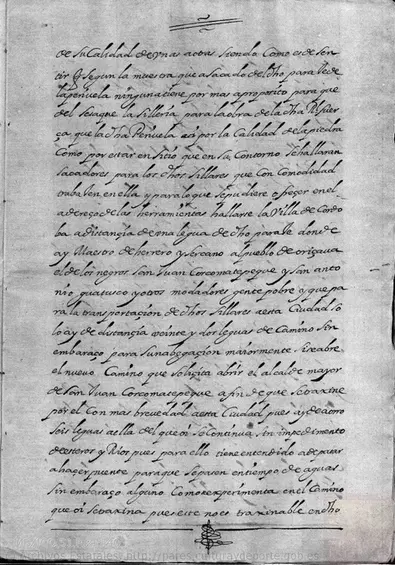 de su Calidad de Unas a otras siendo Como es de sen
tir q segun la muestra que a sacado del dho paraxe de
la peñuela ninguna tiene por mas aproposito para que
del se saque la silleria para la obra de la dha Rl fuer
ça que la dha Peñuela asi por la Calidad de la piedra
Como por estar en sitio que en su Contorno se hallaran
sacadores para los dhos sillares que Con Comodidad
trabaxen en ella y para lo que se pudiere ofreçer en el
adereço de las herramientas hallarse la Villa de Cordo
ba a distançia de una legua de dho paraxe donde
ay Maestro de herrero y serCano al pueblo de orizava
el de los negros San Juan Corcomatepeque y San anto
nio guatusco y otros moradores gente pobre y que pa
ra la transportaçion de dhos sillares a esta Ciudad so
lo ay de distançia veinte y dos leguas de Camino sin
embaraço para su nabegaçion maiormente si se abre
el nuevo Camino que soliçita abrir el alcalde mayor
de San Juan Corcomatepeque a fin de que se traxine
por el Con mas brevedad a esta Ciudad pues ay de aorro
seis leguas a el del que oi se Continua sin impedimento
de esteros y Rios pues para ello tiene entendido a de pasar
a hacer puente para que se pasen en tiempo de aguas
sin embaraço alguno Como se experimenta en el Camino
que oi se traxina pues este no es traxinable en dho
Archivos Estatales, http://pares.mcu